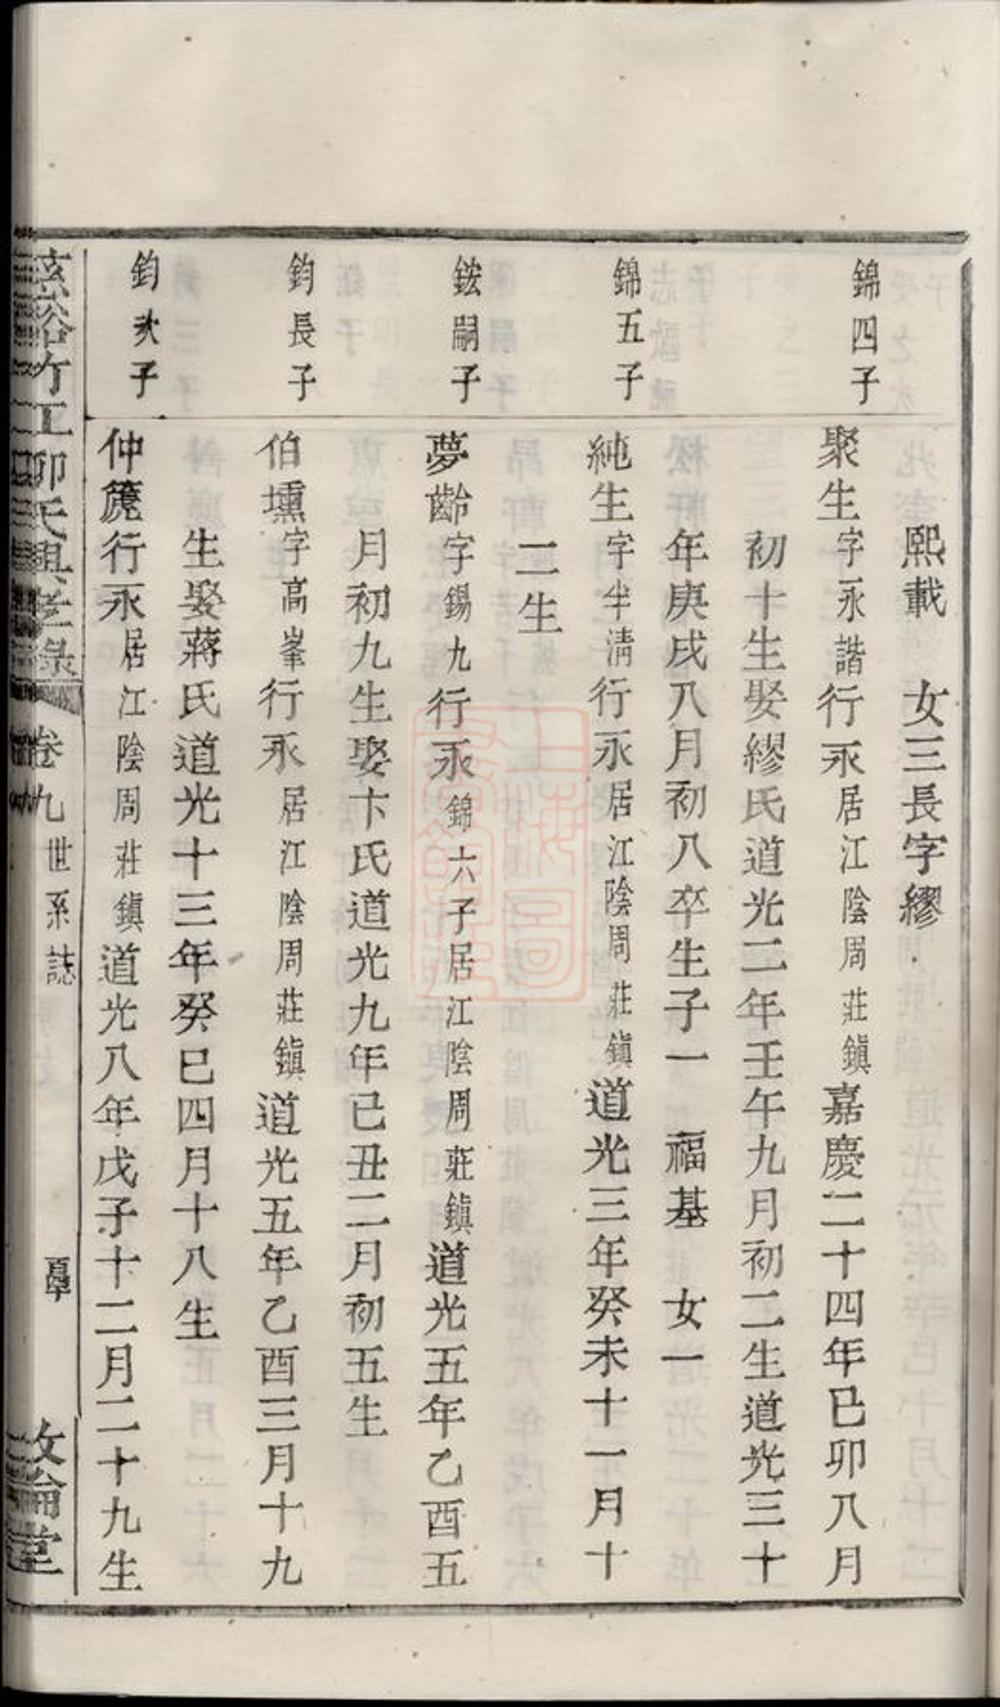 熙載　女三長字繆
錦四子
聚生字永諧行永居江陰周莊鎮嘉慶二十四年己卯八月
初十生娶繆氏道光二年壬午九月初二生道光三十
年庚戌八月初八卒生子一　福基　女一
錦五子
純生字半清行永居江陰周莊鎮道光三年癸未十一月十
二生
鋐嗣子
夢齡字錫九行永錦六子居江陰周莊鎮道光五年乙酉五
月初九生娶卞氏道光九年己丑二月初五生
鈞長子
伯壎字高峯行永居江陰周莊鎮道光五年乙酉三月十九
生娶蔣氏道光十三年癸巳四月十八生
鈞次子
仲篪行永居江陰周莊鎮道光八年戊子十二月二十九生
卷九 世系誌